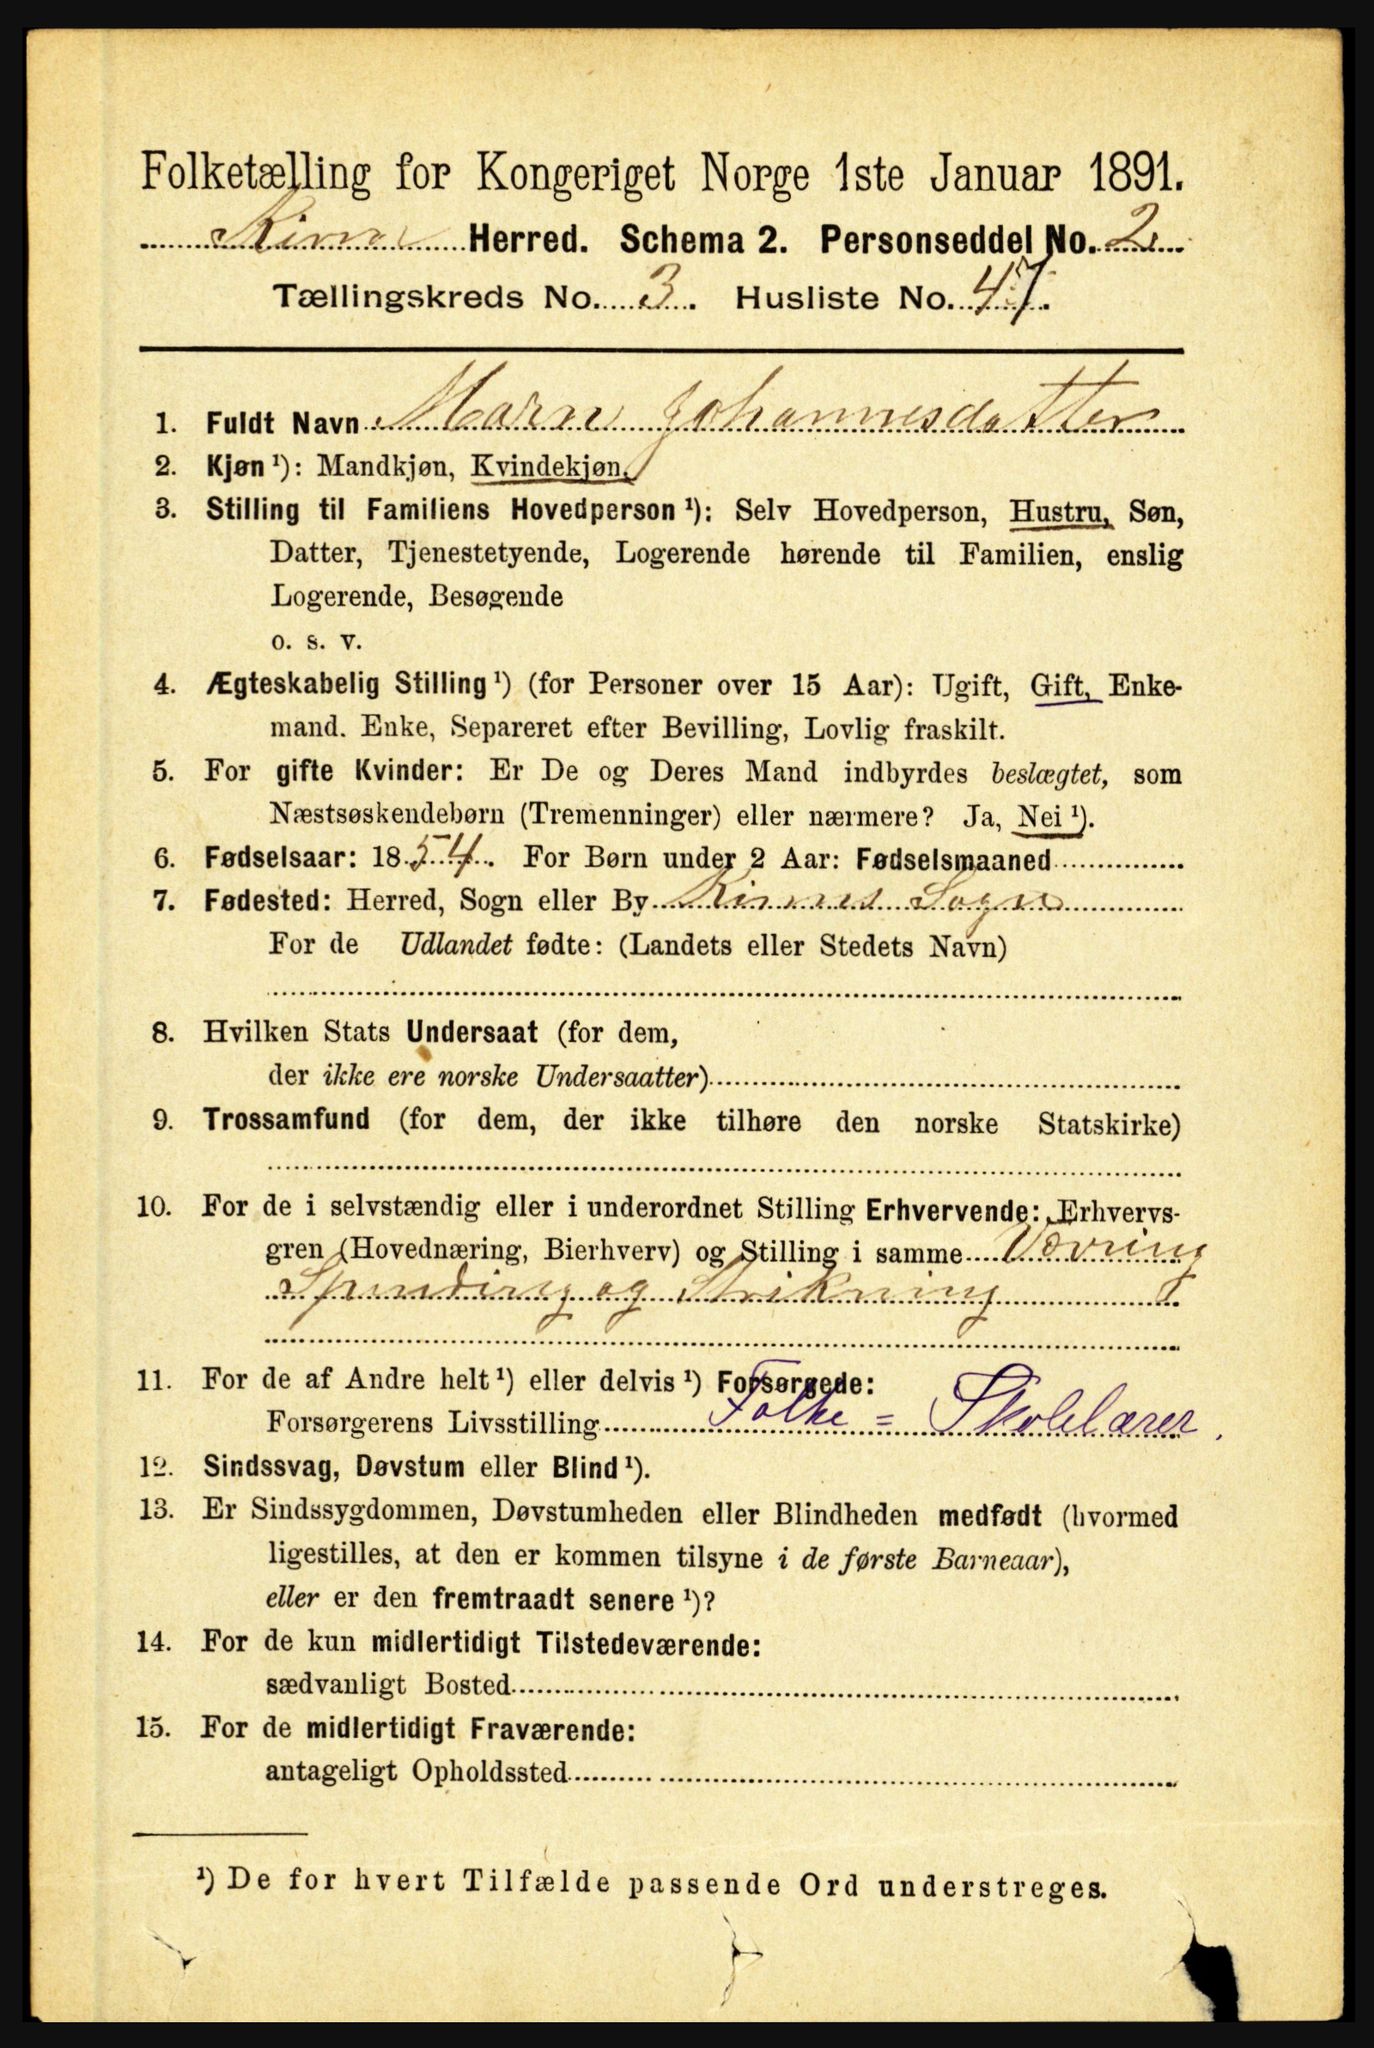 Folketælling for Kongeriget Norge 1ste Januar 1891.
Kinn Herred. Schema 2. Personseddel No. 2.
Tællingskreds No. 3. Husliste No. 47.
1. Fuldt Navn Marn Johannesdatter
2. Kjøn ¹): Mandkjøn, Kvindekjøn.
3. Stilling til Familiens Hovedperson ¹): Selv Hovedperson, Hustru, Søn,
Datter, Tjenestetyende, Logerende hørende til Familien, enslig
Logerende, Besøgende
o. s. v.
4. Ægteskabelig Stilling ¹) (for Personer over 15 Aar): Ugift, Gift, Enke-
mand. Enke, Separeret efter Bevilling, Lovlig fraskilt.
5. For gifte Kvinder: Er De og Deres Mand indbyrdes beslægtet, som
Næstsøskendebørn (Tremenninger) eller nærmere? Ja, Nei ¹).
6. Fødselsaar: 1854. For Børn under 2 Aar: Fødselsmaaned
7. Fødested: Herred, Sogn eller By Kinns Sogn
For de Udlandet fødte: (Landets eller Stedets Navn)
8. Hvilken Stats Undersaat (for dem,
der ikke ere norske Undersaatter)
9. Trossamfund (for dem, der ikke tilhøre den norske Statskirke)
10. For de i selvstændig eller i underordnet Stilling Erhvervende: Erhvervs-
gren (Hovednæring, Bierhverv) og Stilling i samme Vævning
Spinding og Strikning
11. For de af Andre helt ¹) eller delvis ¹) Forsørgede:
Forsørgerens Livsstilling Folke = Skolelærer.
12. Sindssvag, Døvstum eller Blind ¹).
13. Er Sindssygdommen, Døvstumheden eller Blindheden medfødt (hvormed
ligestilles, at den er kommen tilsyne i de første Barneaar),
eller er den fremtraadt senere ¹)?
14. For de kun midlertidigt Tilstedeværende:
sædvanligt Bosted
15. For de midlertidigt Fraværende:
antageligt Opholdssted
¹) De for hvert Tilfælde passende Ord understreges.